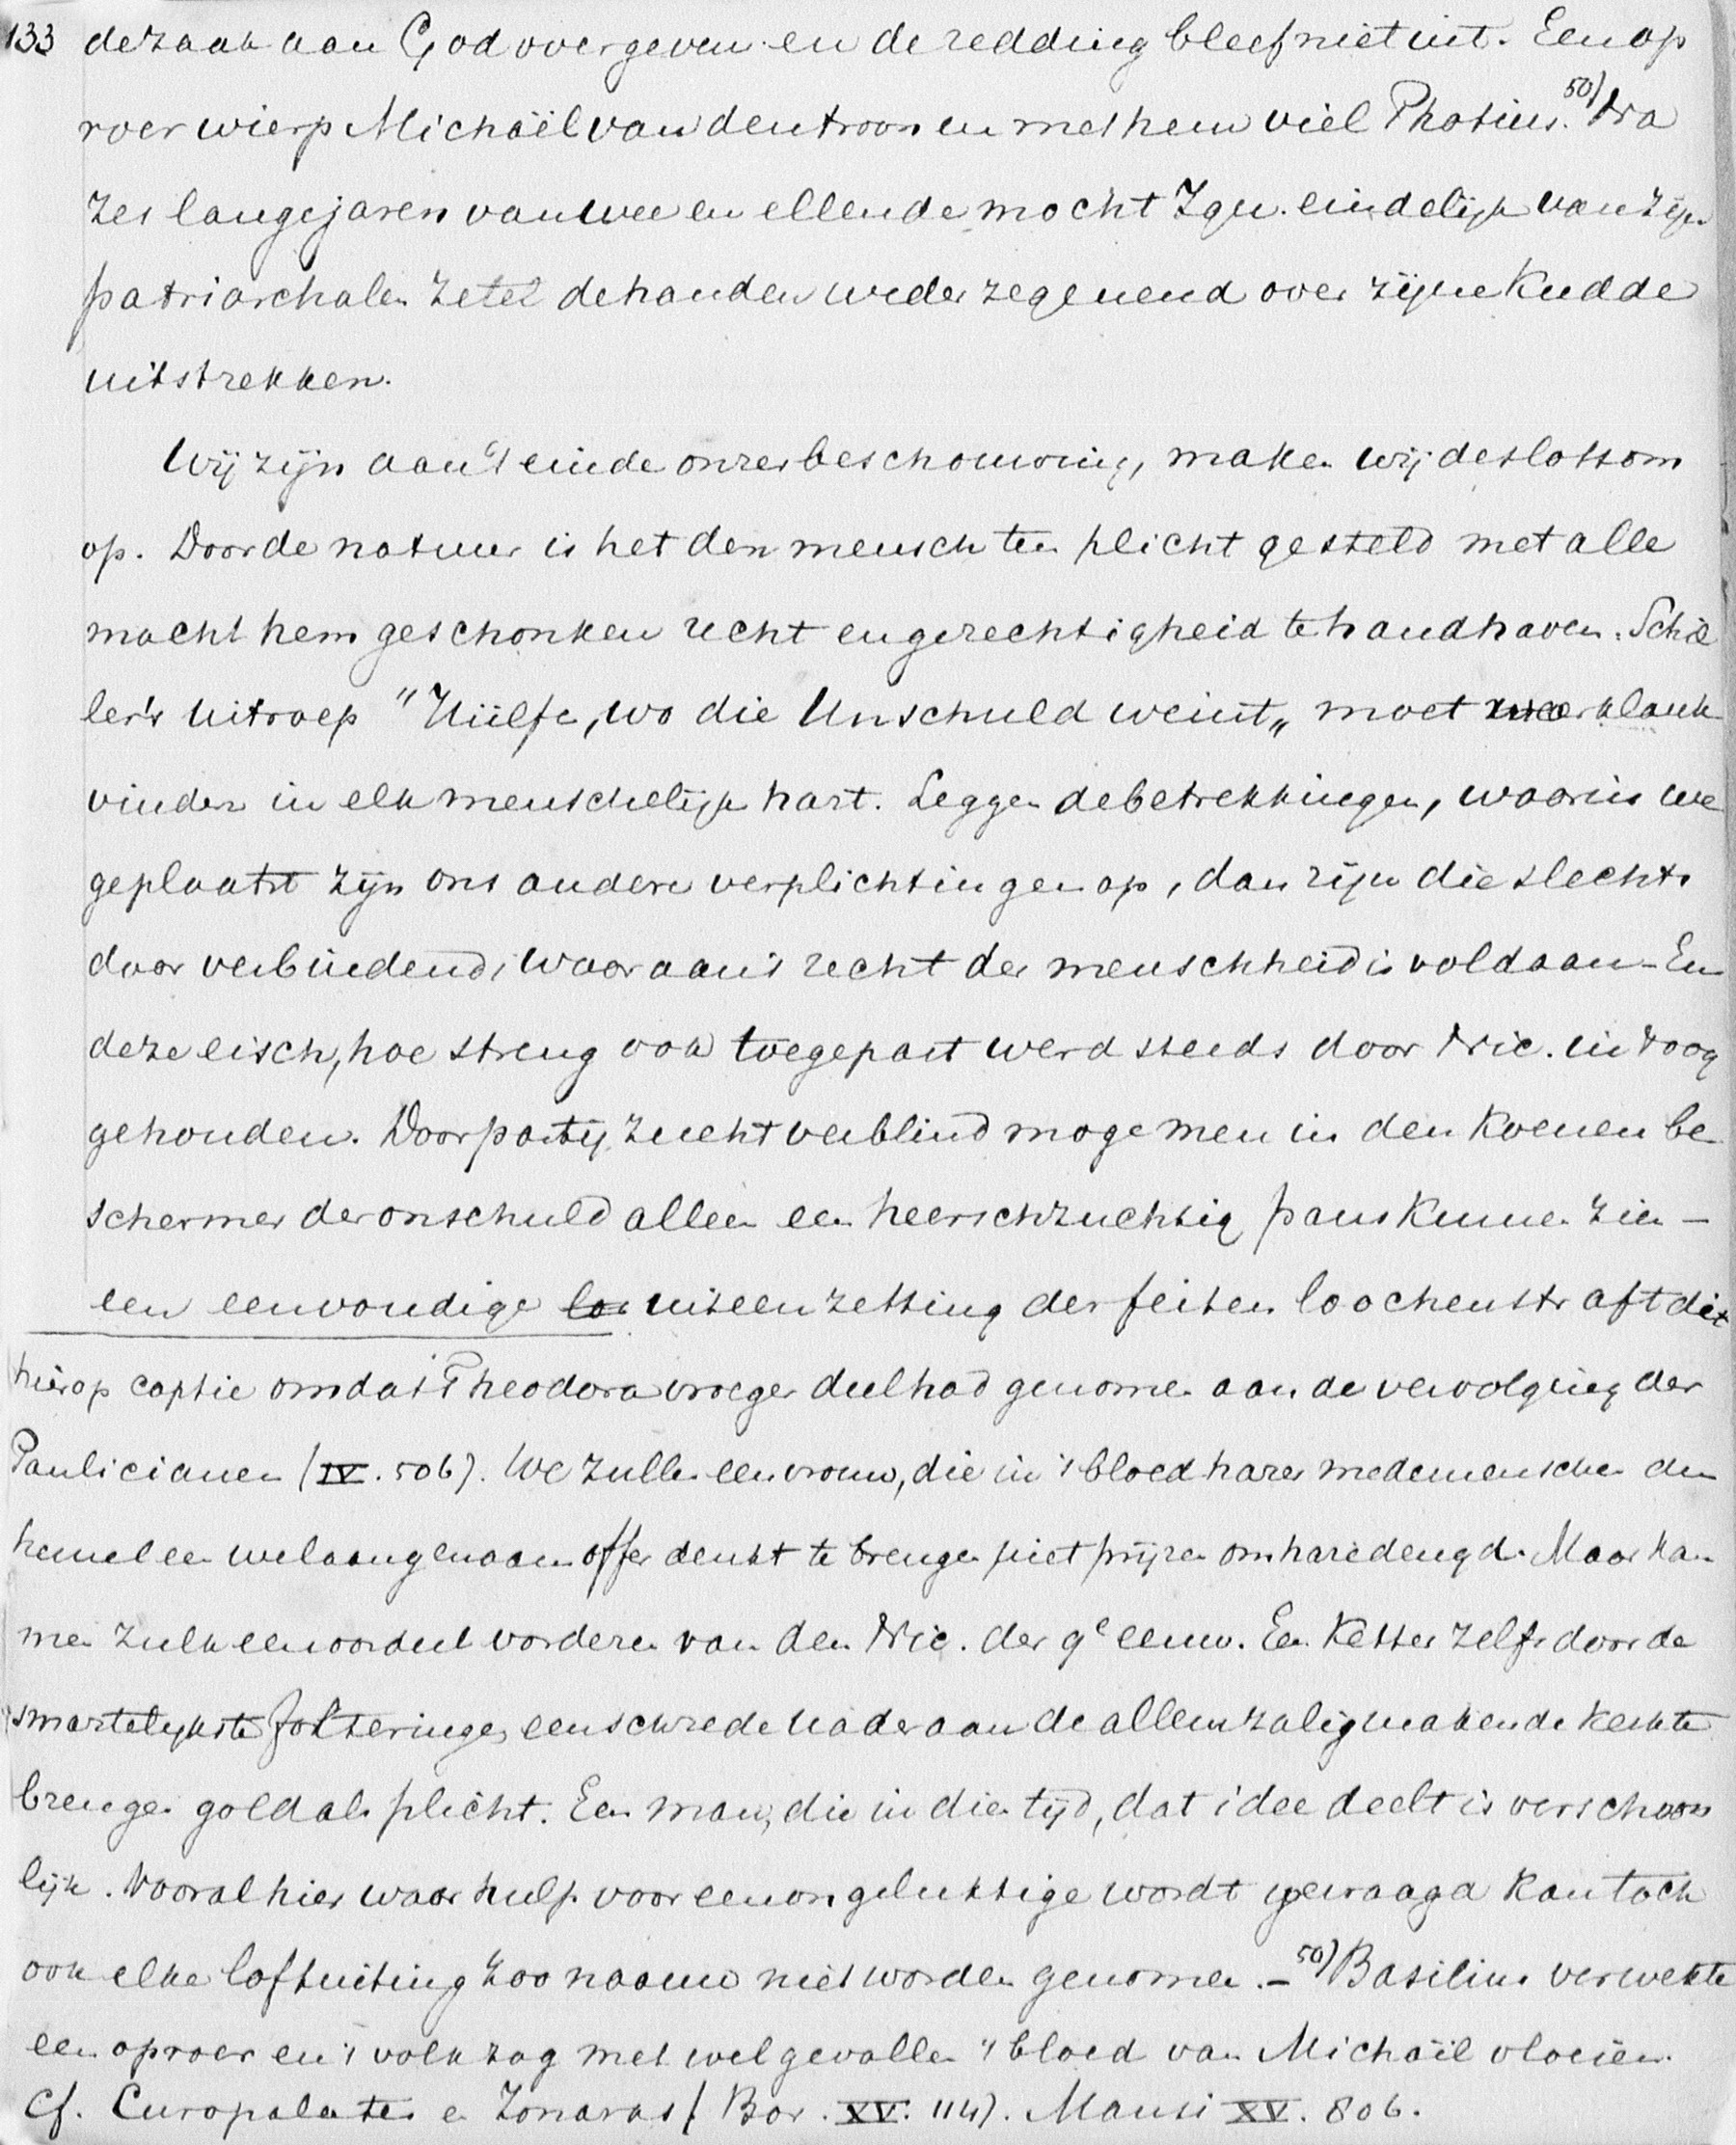 133 de zaak aan God overgeven en de redding bleef niet uit. Een op
roer wierp Michaël van den troon en met hem viel Photius. 50) Na
zes lange jaren van wee en ellende mocht Ign. eindelijk van zijn
patriarchalen zetel de handen weder zegenend over zijne kudde
uitstrekken.
Wij zijn aan 't einde onzer beschouwing, maken wij de slotsom
op. Door de natuur is het den mensch ten plicht gesteld met alle
macht hem geschonken recht en gerechtigheid te handhaven. Schil
ler's uitroep "Hülfe, wo die Unschuld weint„ moet weerklank
vinden in elk menschelijk hart. Leggen de betrekkingen, waarin we
geplaatst zijn ons andere verplichtingen op, dan zijn die slechts
daar verbindend, waar aan 't recht der menschheid is voldaan – En
deze eisch, hoe streng ook toegepast werd steeds door Nic. in 't oog
gehouden. Door partijzucht verblind moge men in den koenen be
schermer der onschuld alleen een heerschzuchtig paus kunnen zien –
een eenvoudige uiteenzetting der feiten loochenstraft dit
hierop captie omdat Theodora vroeger deel had genomen aan de vervolging der
Paulicianen (IV. 506). We zullen een vrouw, die in 't bloed harer medemenschen den
hemel een welaangenaam offer denkt te brengen niet prijzen om hare deugd. Maar kan
men zulk een oordeel vorderen van den Nic. der 9e eeuw. Een ketter zelfs door de
smartelijkste folteringen een schrede nader aan de alleenzaligmakende kerk te
brengen gold als plicht. Een man, die in dien tijd, dat idee deelt is verschoon
lijk. Vooral hier waar hulp voor een ongelukkige wordt gevraagd kan toch
ook elke loftuiting zoo naauw niet worden genomen. – 50) Basilius verwekte
een oproer en 't volk zag met welgevallen 't bloed van Michaël vloeien.
Cf. Curopalates en Zonaras (Bar. XV. 114). Mansi XV. 806.